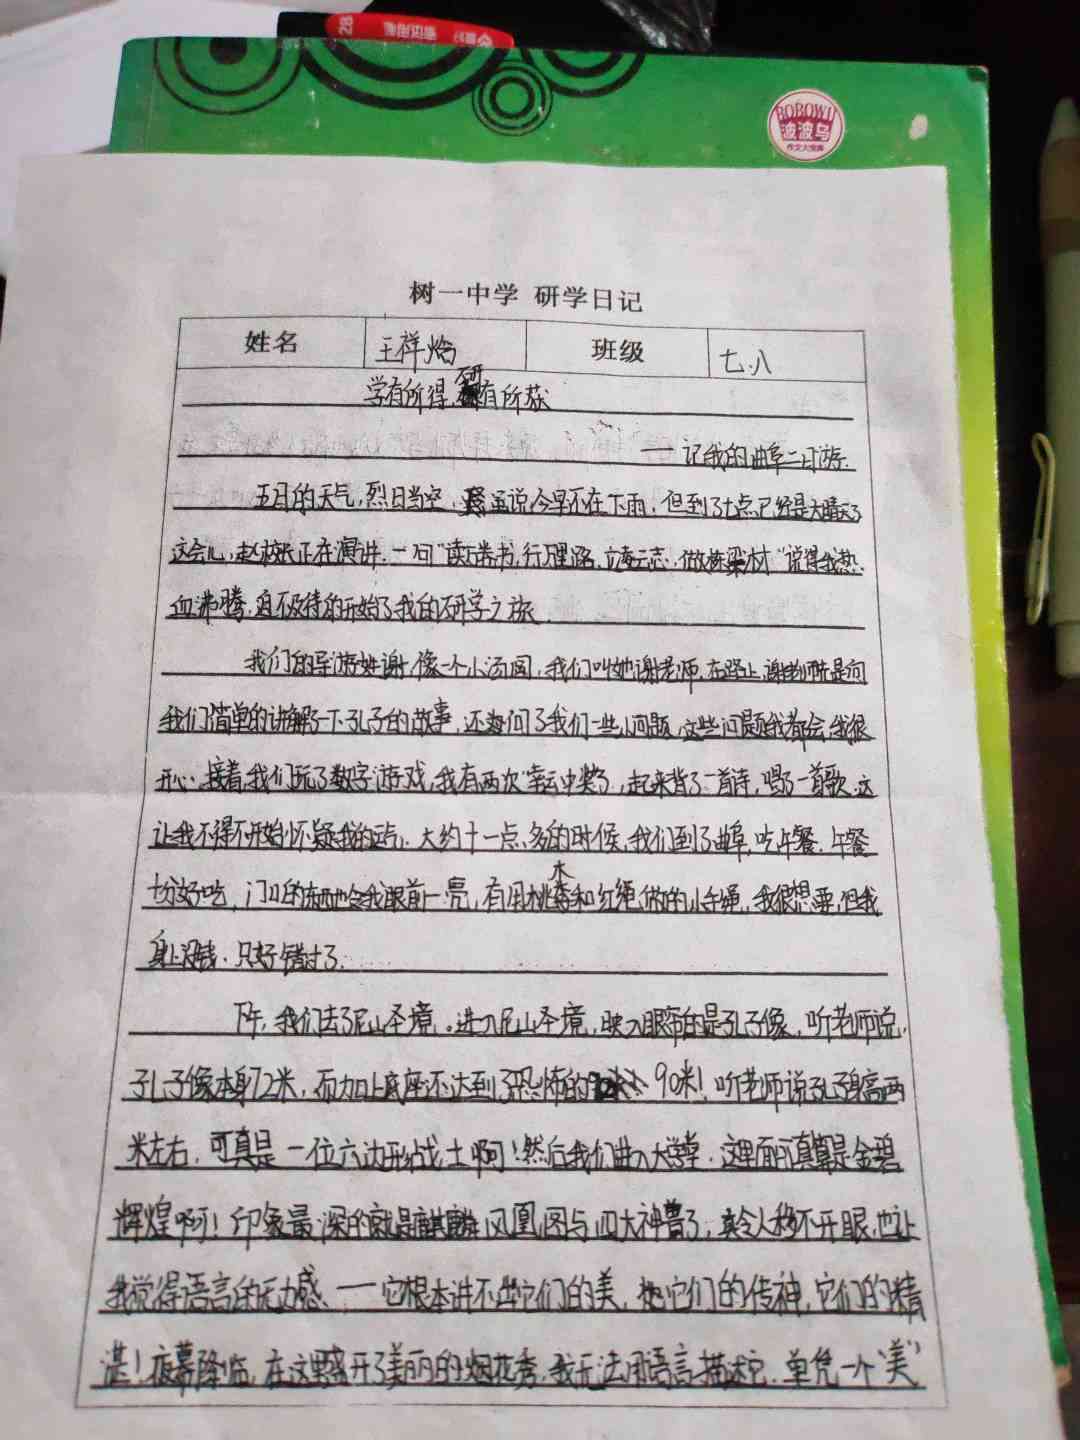 28
BOBOWU
波波乌
作文大宝库
树一中学 研学日记
姓名 王祥焓 班级 七.八
学有所得,研有所获
——记我的曲阜二日游.
五月的天气,烈日当空,虽说今早不在下雨,但到了七点已经是大晴天了
这会儿,赵校长正在演讲.一句"读万卷书,行万里路,立志,做栋梁材"说得我热
血沸腾,迫不及待的开始了我的研学之旅.
我们的导游姓谢,像一个小汤圆,我们叫她谢老师,在路上,谢老师先是向
我们简单的讲解了一下孔子的故事,还询问了我们一些小问题,这些问题我都会,我很
开心.接着,我们玩了数字游戏,我有两次"幸运中奖了,起来背了一首诗,唱了一首歌.这
让我不得不开始怀疑我的运气.大约十一点多的时候,我们到了曲阜,吃午餐.午餐
十分好吃,门口的东西也令我眼前一亮,有用桃木和红绳做的小手绳,我很想要,但我
身上没钱.只好错过了.
下午,我们去了尼山圣境。进入尼山圣境,映入眼帘的是孔子像,听老师说,
子孔子像本身72米,而加上底座还达到了恐怖的90米!听老师说孔子身高两
米左右,可真是一位六边形战士啊!然后我们进入大学堂.这里面可真算是金碧
辉煌啊!印象最深的就是麒麟凤凰图与四大神兽了,真令人移不开眼,也让
我觉得语言的无力感.——它根本讲不出它们的美,它们的传神,它们的精
湛!夜幕降临,在这里盛开了美丽的烟花秀,我无法用语言描述它,单凭一个"美"